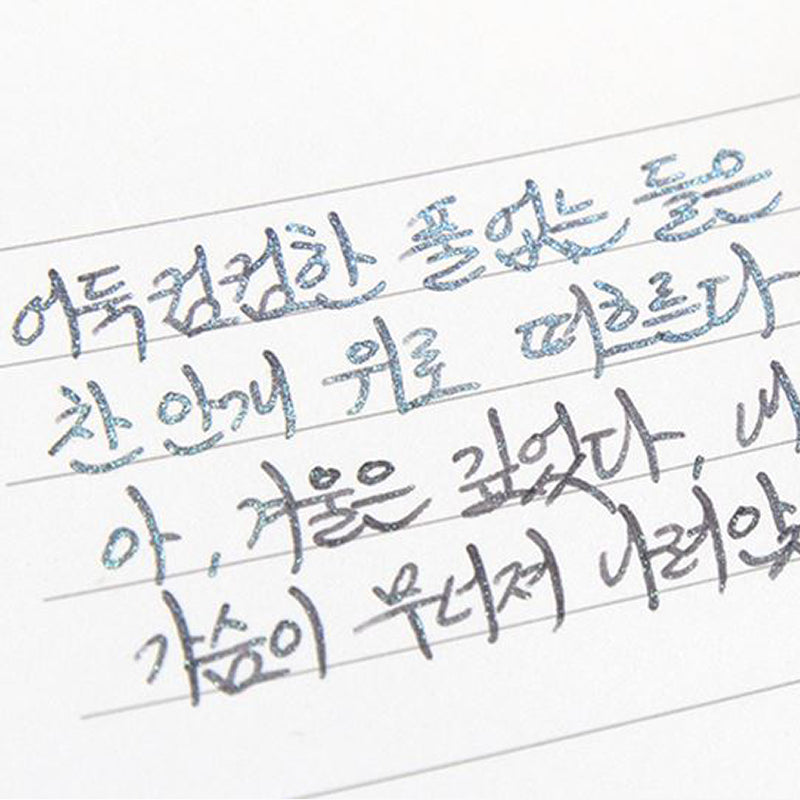 어둑컴컴한 풀없는 들은
찬 안개 위로 떠흐르다
아, 겨울은 깊었다, 내
가슴이 무너져 나려앉